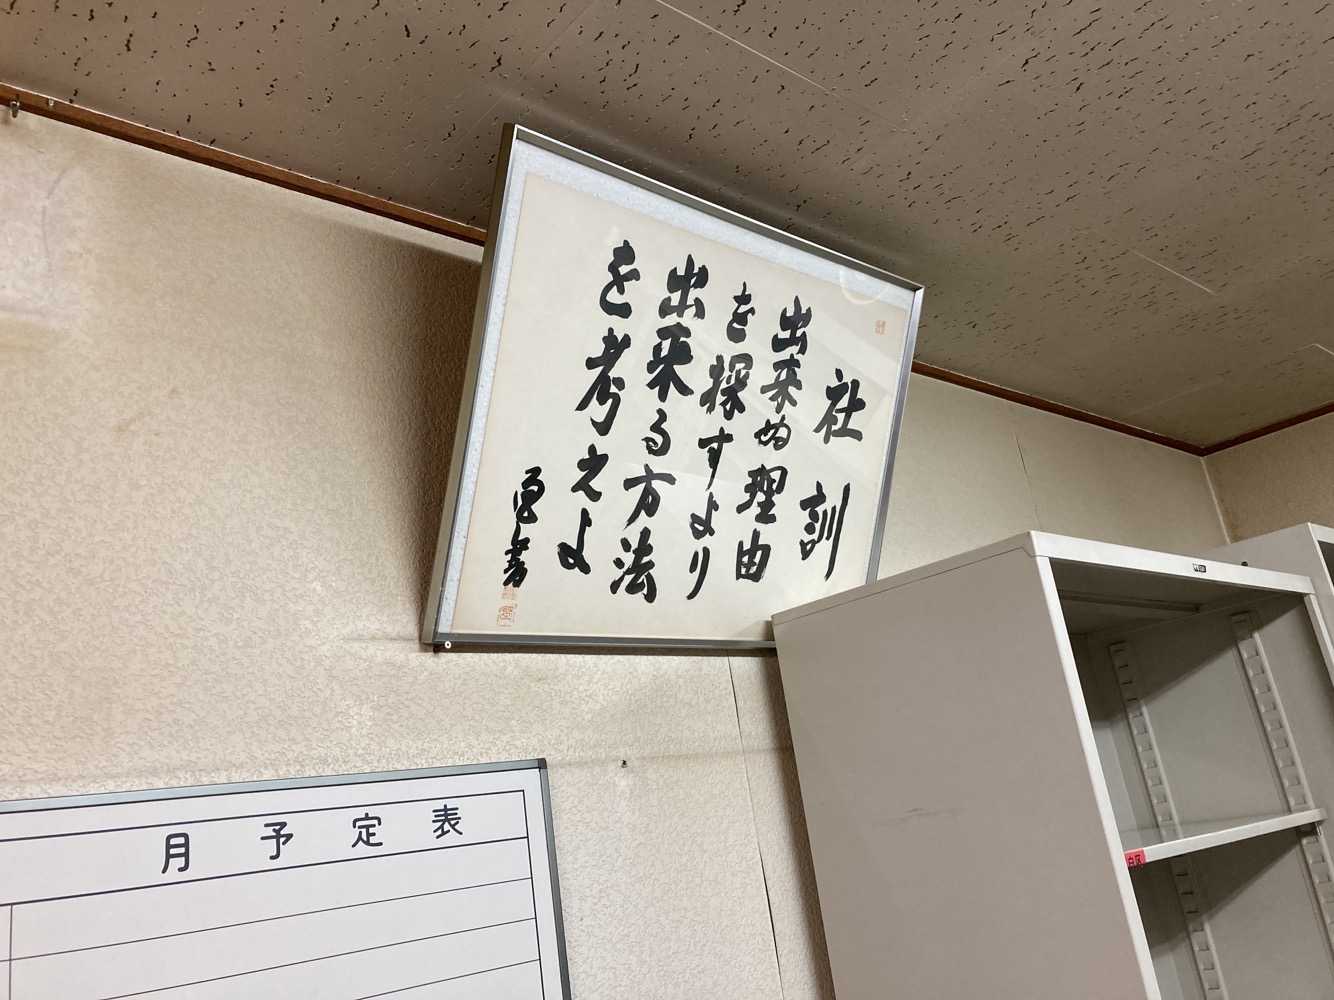 社訓
出来ぬ理由
を探すより
出来る方法
を考えよ
月予定表